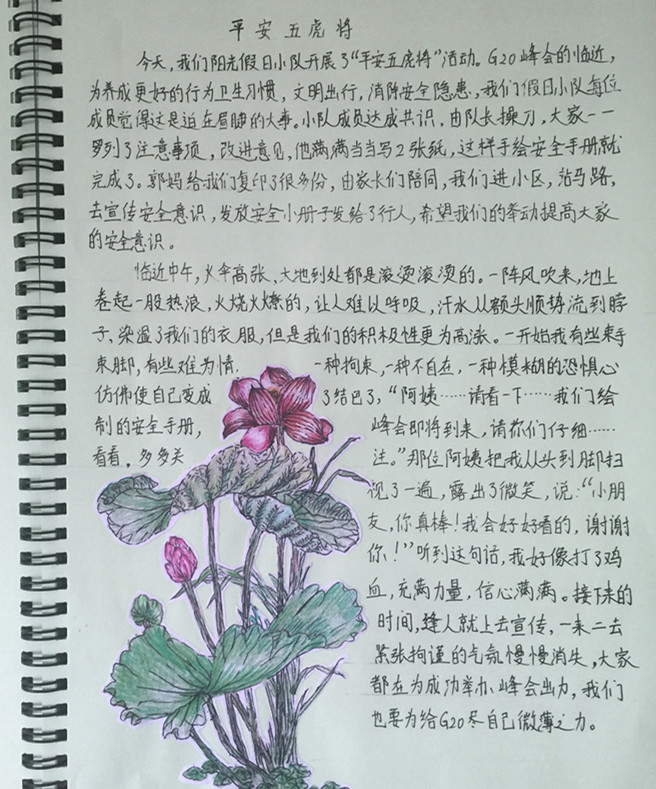 平安五虎将
今天,我们阳光假日小队开展了“平安五虎将”活动。G20峰会的临近,
为养成更好的行为卫生习惯,文明出行,消除安全隐患,我们假日小队每位
成员觉得这是迫在眉睫的大事。小队成员达成共识,由队长操刀,大家一一
罗列了注意事项,改进意见,他满满当当写2张纸,这样手绘安全手册就
完成了。郭妈给我们复印了很多份,由家长们陪同,我们进小区,站马路,
去宣传安全意识,发放安全小册子发给了行人,希望我们的举动提高大家
的安全意识。
临近中午,火伞高张,大地到处都是滚烫滚烫的。一阵风吹来,地上
卷起一股热浪,火烧火燎的,让人难以呼吸,汗水从额头顺势流到脖
子,染湿了我们的衣服,但是我们的积极性更为高涨。一开始我有些束手
束脚,有些难为情.一种拘束,一种不自在,一种模糊的恐惧心
仿佛使自己变成了结巴了,“阿姨……请看一下……我们绘
制的安全手册,峰会即将到来,请你们仔细……
看看。多多关注。”那位阿姨把我从头到脚扫
视了一遍,露出了微笑,说:“小朋
友,你真棒!我会好好看的,谢谢
你!”听到这句话,我好像打了鸡
血,充满力量,信心满满。接下来的
时间,逢人就上去宣传,一来二去
紧张拘谨的气氛慢慢消失,大家
都在为成功举办峰会出力,我们
也要为给G20尽自己微薄之力。